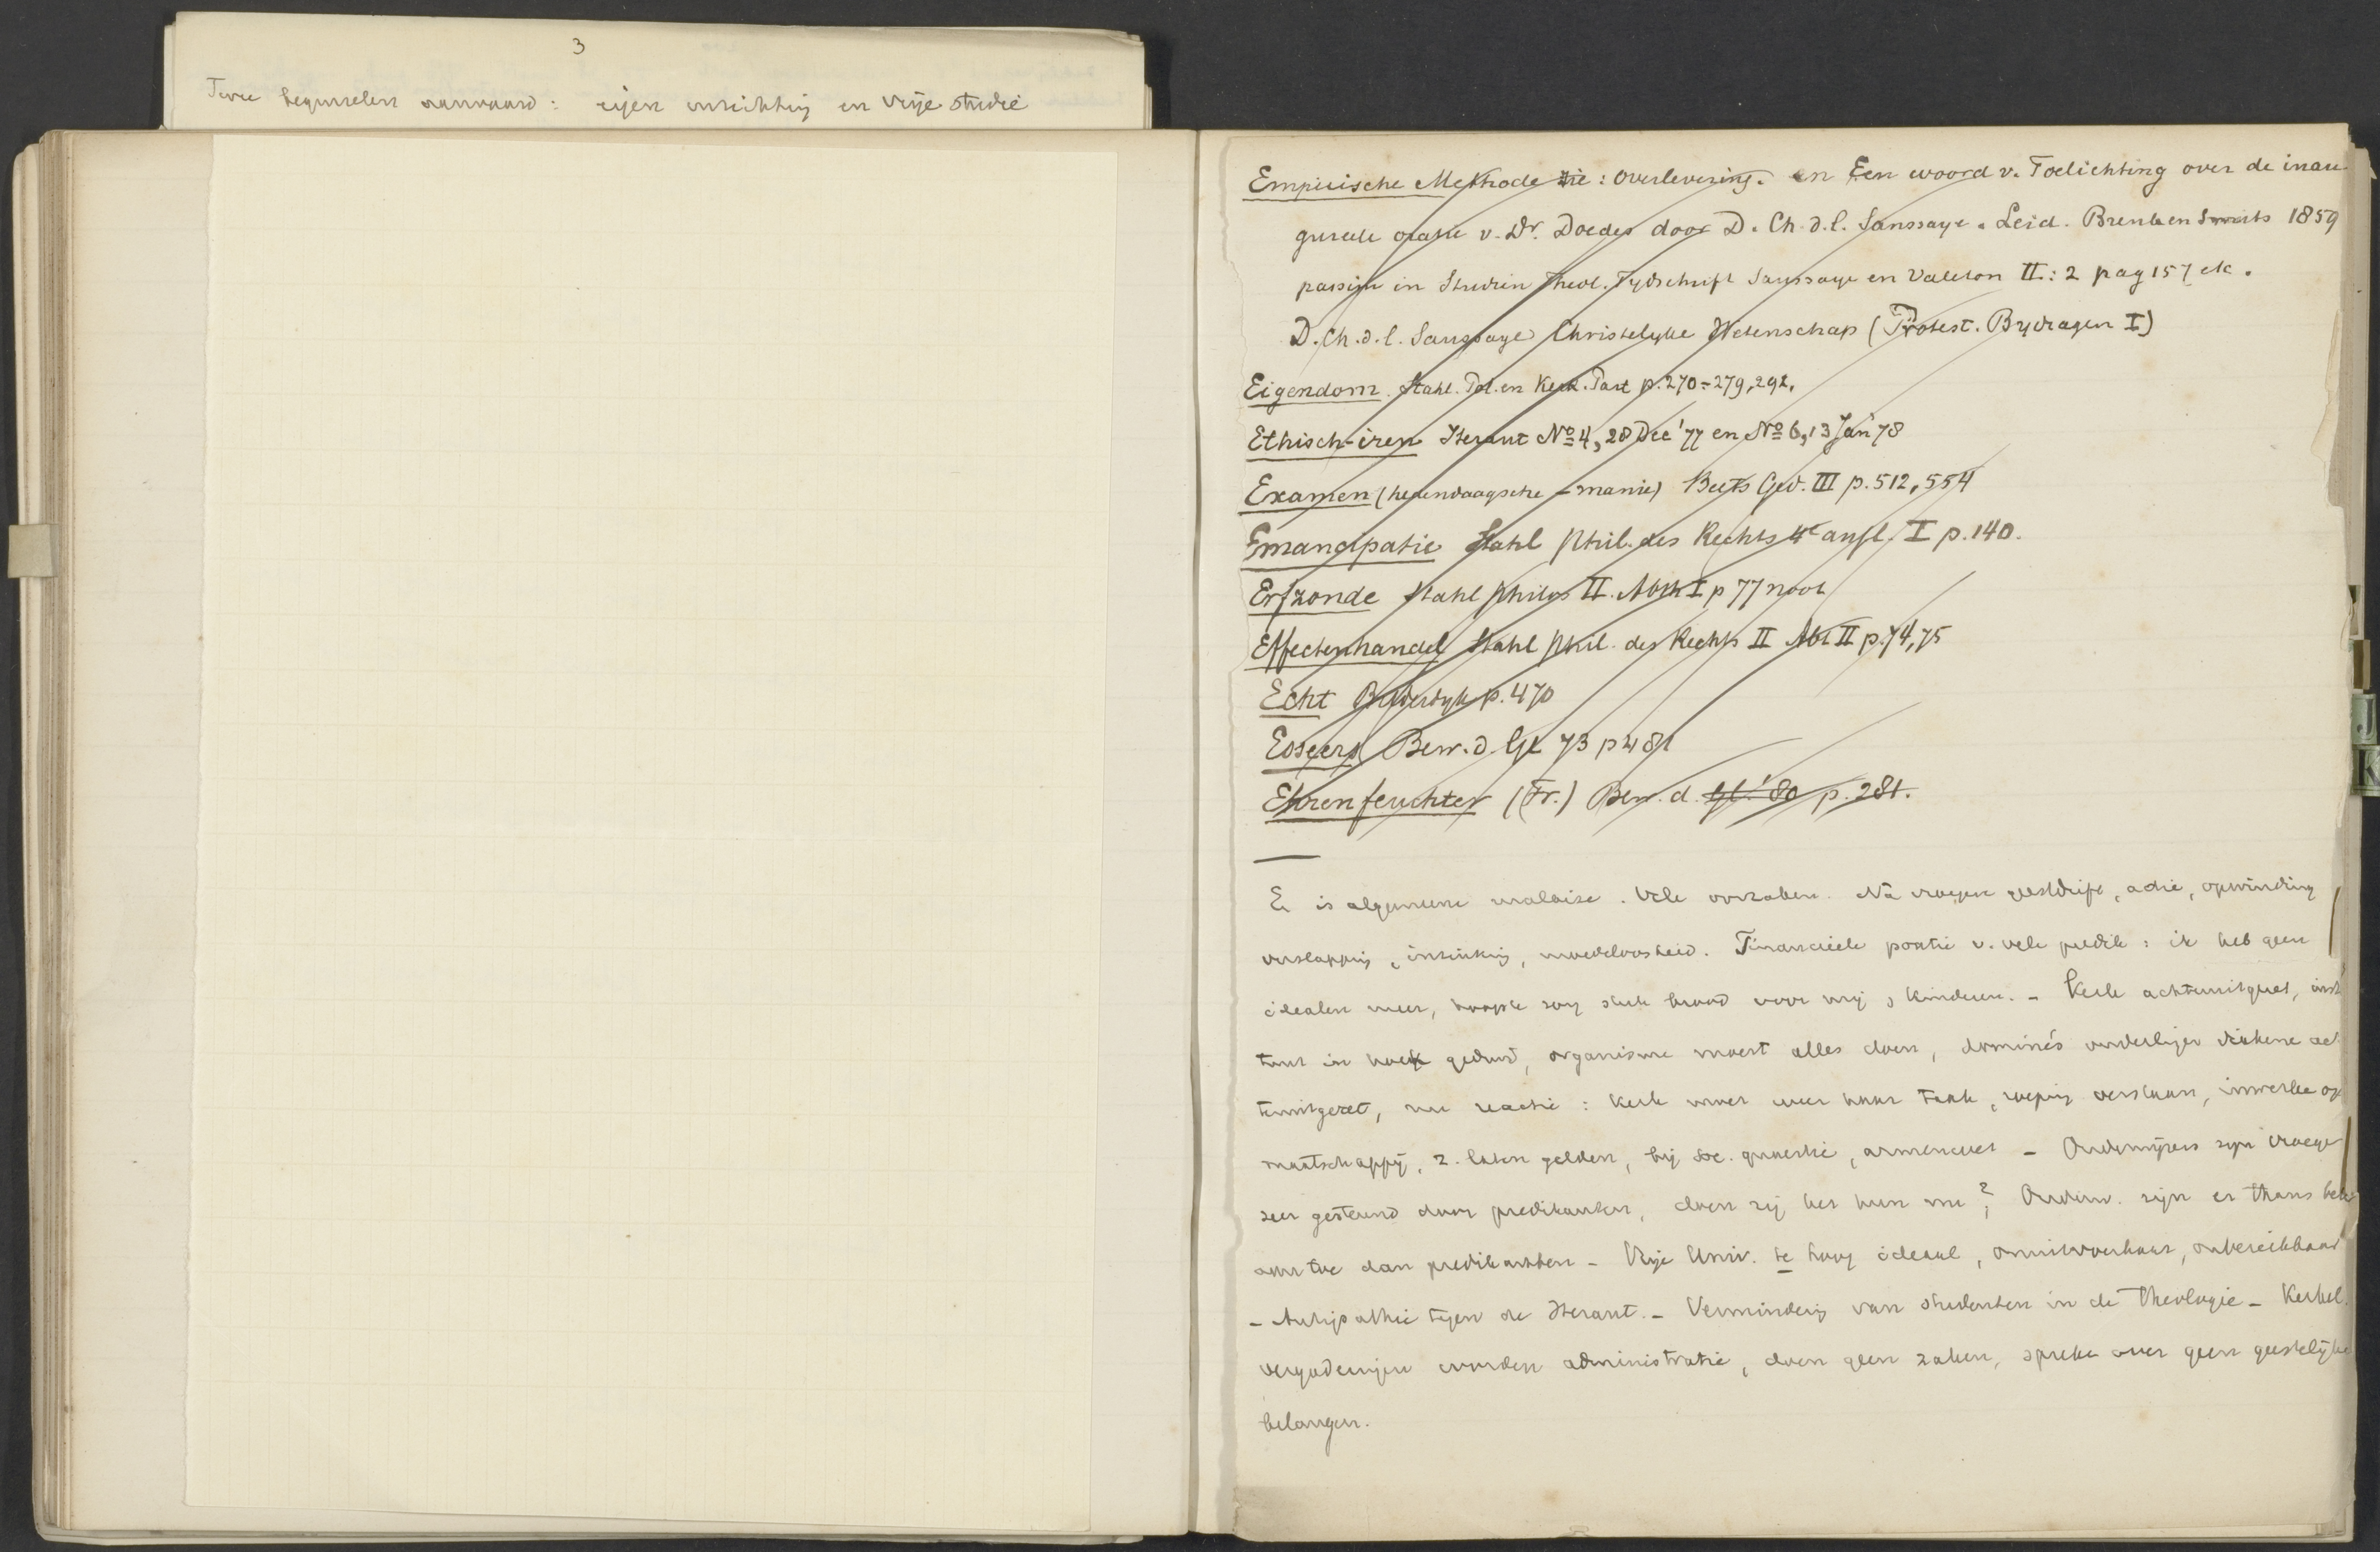 3
Twee beginselen aanvaard: eigen inrichting en vrije studie
Empirische Methode zie: Overlevering. en Een woord v. Toelichting over de inau-
gureele oratie v. Dr. Doedes door D. Ch. d. l. Saussaye. Leid. Brenk en Smits 1859
passim in Studien Theol. Tydschrift Saussaye en Valeton II: 2 pag 157 etc.
D. Ch. d. l. Saussaye Christelyke Wetenschap (Protest. Bydragen I)
Eigendom. Stahl. Pol. en Kerk. Part p. 270-279, 292.
Ethisch-iren Heraut No 4, 28 Dec '77 en No 6, 13 Jan 78
Examen (hedendaagsche - manie) Beets Ged. III p. 512, 554
Emancipatie Stahl Phil. des Rechts 4e aufl. I p. 140.
Erfzonde Stahl Philos II. Abth I p 77 noot
Effectenhandel Stahl Phil. des Rechts II Abt II p. 74, 75
Echt Bilderdyk p. 470
Esseers Bew. d. Gel 73 p 481
Ehrenfeuchter (Fr.) Bew. d. Gel. '80 p. 281.
Er is algemeene malaise. Vele oorzaken. Na vroegere geestdrift, actie, opwinding
verslapping, inzinking, moedeloosheid. Financieele positie v. vele predik: ik heb geen
idealen meer, hoogste zorg stuk brood voor mij, kinderen. - Kerk achteruitgezet, insti
tuut in hoek geduwd, organisme moest alles doen, dominé's onderlinge ach
teruitgezet, nu reactie: Kerk moet weer haar taak, roeping verstaan, inwerken op
maatschappij, z. laten gelden, bij soc. quaestie, armenwet - Onderwijzers zijn vroeger
zeer gesteund door predikanten, doen zij het hun nu? Onderw. zijn er thans beter
aan toe dan predikanten - Vrije Univ. te hoog ideaal, onuitvoerbaar, onbereikbaar
- Antipathie tegen de Heraut. - Vermindering van studenten in de theologie - Kerkel.
vergaderingen worden administratie, doen geen zaken, spreken over geen geestelijke
belangen.